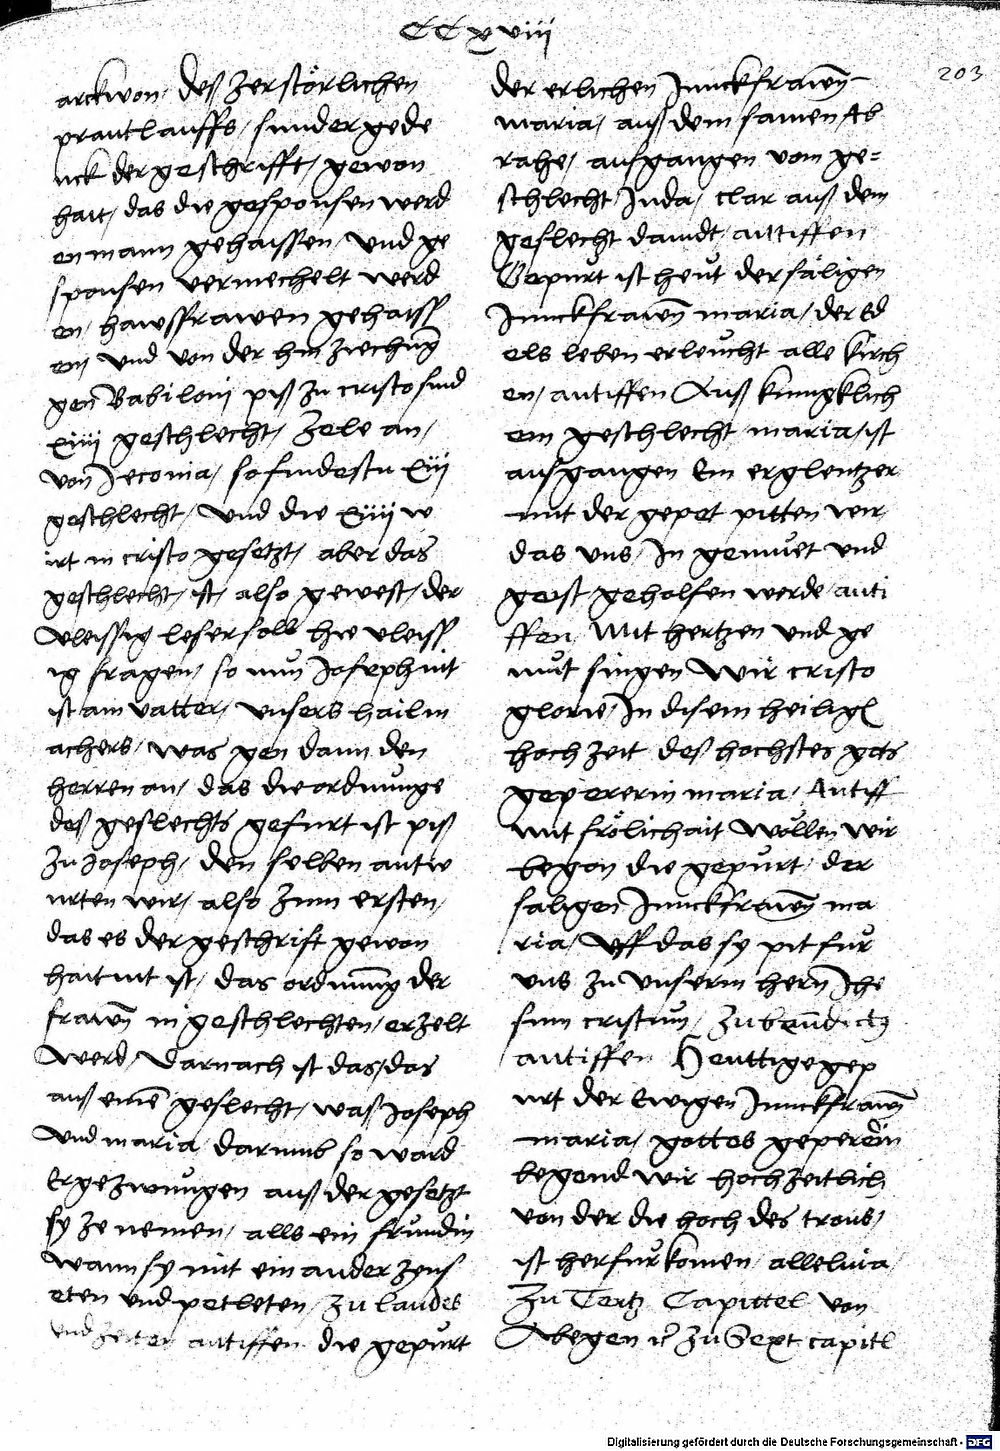 CCxviii
203
arckwon / deß zerstörlichen
prautlauffs / sunder gede
nck der geschrifft / gewon
hait / das die gesponsen werd
en mann gehaissen / und ge
sponsen vermechelt werd
en / hawssfrawen gehaiss
en / und von der hin ziechūg
gen Babiloni piß zu cristo sind
xiiii geschlecht / Zele an /
von Jeconia / so findestu xiii
geschlecht / und die xiiii w
irt in cristo gesetzt / aber das
geschlecht / ist / also gewest / der
vleissig leser soll hie vleiss
ig fragen / so nun Joseph nit
ist ain vatter / unsers hailm
achers / was gen dann den
herren an / das die ordnunge
deß geslechts gefurt ist piß
zu Joseph / den selben antw
urten wir / also zum ersten /
das es der geschrift gewon
hait nit ist / das ordnung der
frawē in geschlechten / erzelt
werd / Darnach ist das / das
auß einē geslecht / was Joseph
und maria darumb so ward
Er gezwungen auß der gesetzt
sy ze nemen / alls ein frundin
wann sy mit ein ander zens
eten und petleten / zu laudes
und zeiten antiffen die gepurt
der erlichen Junckfrawē
maria / auß dem samen Ab
rahe / aufgangen vom ge=
schlecht / Juda / clar auß dem
geslecht dauidt / antiffen
Gepurt ist heut der säligen
Junckfrawē maria / der ed
els leben erleucht alle kirch
en / antiffen Auß kungklich
em geschlecht maria / ist
aufgangen Ein erglentzer
mit der gepet pitten wir
das uns / In gemuet und
geist geholfen werde / anti
ffen / Mit hertzen und ge
mut singen wir cristo
glorie / In disem heilig
hoch zeit deß hochstes gots
gepererin maria / Antiff
mit frölichait wöllen wir
begon die gepurt / der
saligen Junckfrawē ma
ria / Uff das sy pit fur
uns zu unserm hern Jhe
sum cristum / zu benedictq
antiffen Heuttige gep
urt der Ewigen Junckfrawē
maria / gottes geperein
begend wir hochzeitlich
von der die hoch des trons /
ist herfur komen / alleluia /
Zu Tertz Capittel von
Abegen zu Sext capitl
Digitalisierung gefördert durch die Deutsche Forschungsgemeinschaft - DFG